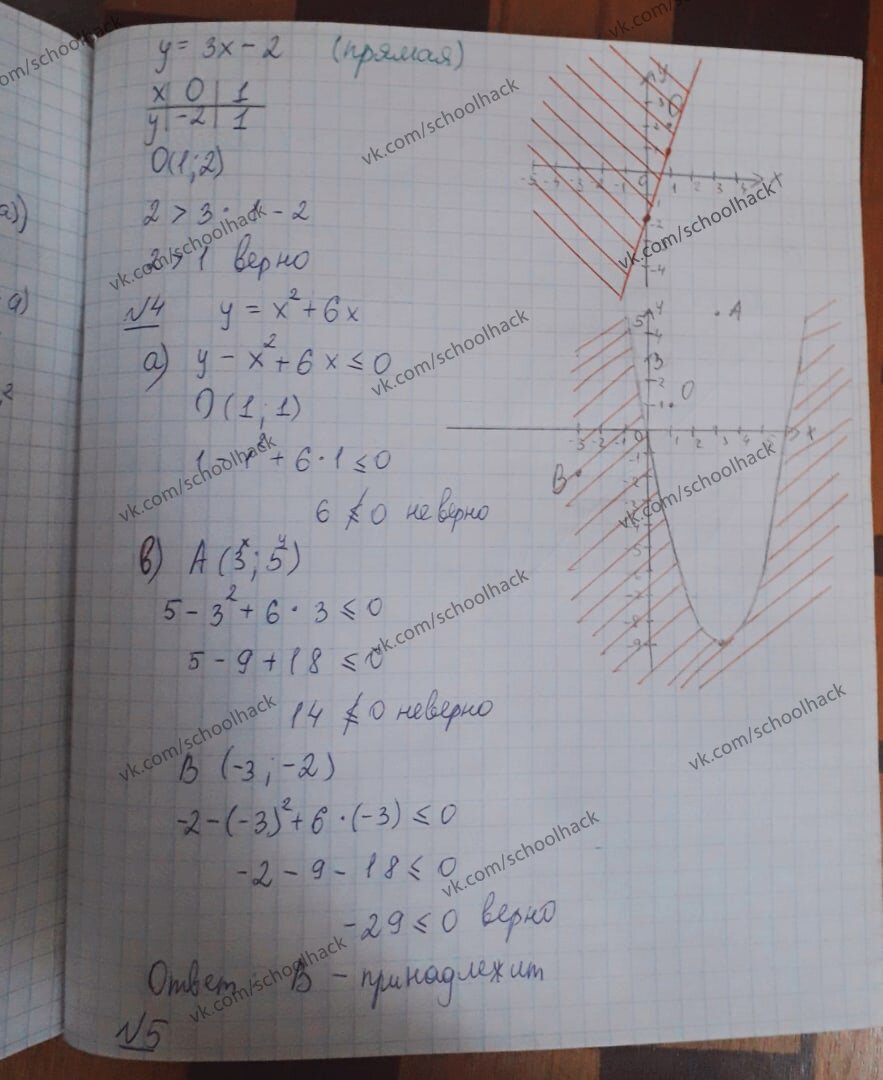 y = 3x - 2 (прямая)
x | 0 | 1
y | -2 | 1
O(1;2)
2 > 3 · 1 - 2
2 > 1 верно
№4 y = x² + 6x
а) y - x² + 6x ≤ 0
O(1;1)
1 - 1² + 6·1 ≤ 0
6 ≰ 0 неверно
в) A(3;5)
x y
5 - 3² + 6 · 3 ≤ 0
5 - 9 + 18 ≤ 0
14 ≰ 0 неверно
B (-3;-2)
-2 - (-3)² + 6 · (-3) ≤ 0
-2 - 9 - 18 ≤ 0
-29 ≤ 0 верно
Ответ B - принадлежит
№5
а))
а)
2
y
x
-5 -4 -3 -2 -1 0 1 2 3 4
-2
-4
O
y
5
4
3
2
1
A
O
B
-3 -2 -1 0 1 2 3 4 5 x
-1
-2
-5
-7
-8
-9
vk.com/schoolhack
vk.com/schoolhack
vk.com/schoolhack
vk.com/schoolhack
vk.com/schoolhack
vk.com/schoolhack
vk.com/schoolhack
vk.com/schoolhack
vk.com/schoolhack
vk.com/schoolhack
vk.com/schoolhack
vk.com/schoolhack
vk.com/schoolhack